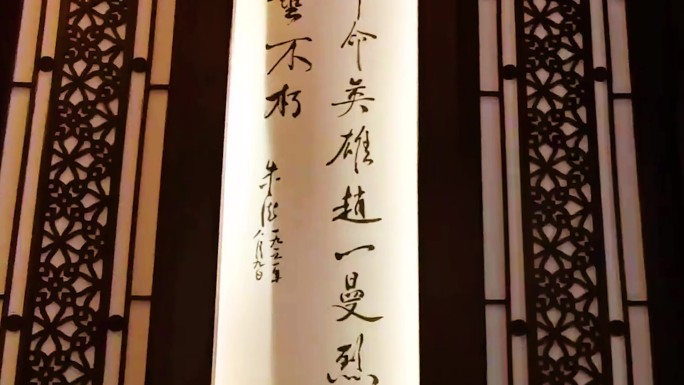 命英雄趙一曼烈
垂不朽
朱德 一九六一年
八月九日